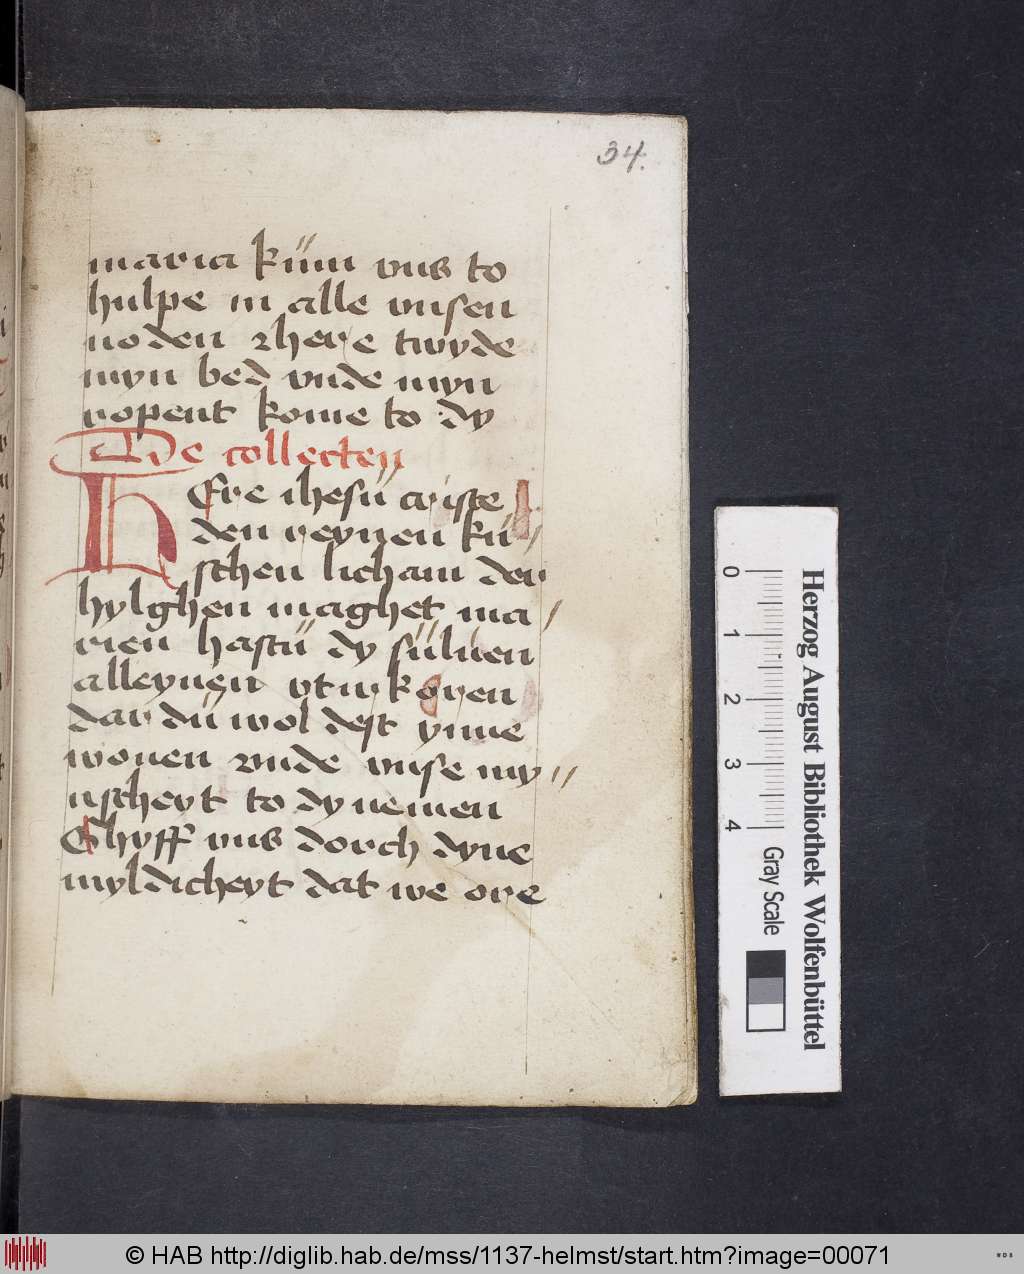 34.
maria küm vns to
hulpe in alle vnsen
noden here twyde
myn bed vnde myn
ropent kome to dy
De collecten
HEre ihesü criste
den reynen kü//
schen licham der
hylghen maghet ma/
rien hastü dy süluen
alleynen vtirkoren
dar dü wol dest ynne
wonen vnde vnse my//
nscheyt to dy nemen
Ghyff vns dorch dyne
myldicheyt dat we ore
0 1 2 3 4
Gray Scale
Herzog August Bibliothek Wolfenbüttel
© HAB http://diglib.hab.de/mss/1137-helmst/start.htm?image=00071